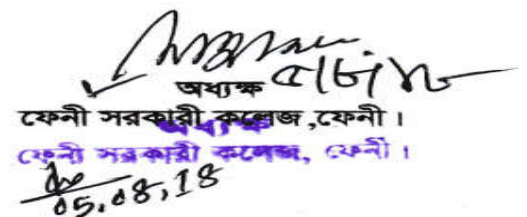 ৫/৮/১৮
অধ্যক্ষ
ফেনী সরকারী কলেজ,ফেনী।
অধ্যক্ষ
ফেনী সরকারী কলেজ, ফেনী।
05.08.18